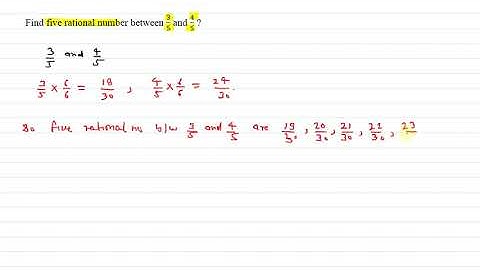 Find five rational number between 3/5 and 4/5 ?
3/5 and 4/5
3/5 × 6/6 = 18/30 , 4/5 × 6/6 = 24/30.
So five rational no b/w 3/5 and 4/5 are 19/30 , 20/30 , 21/30 , 22/30 , 23/